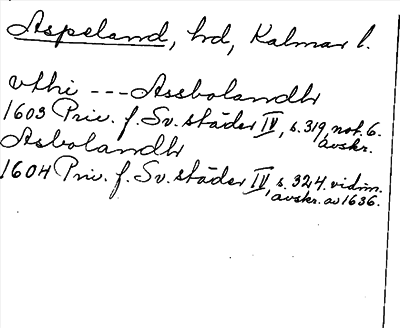 Aspeland, hd, Kalmar l.
vthi --- Assbolandh
1603 Priv. f. Sv. städer IV, s. 319, not. 6.
avskr.
Asbolandh
1604 Priv. f. Sv. städer IV, s. 324. vidim.
avskr. av 1636.